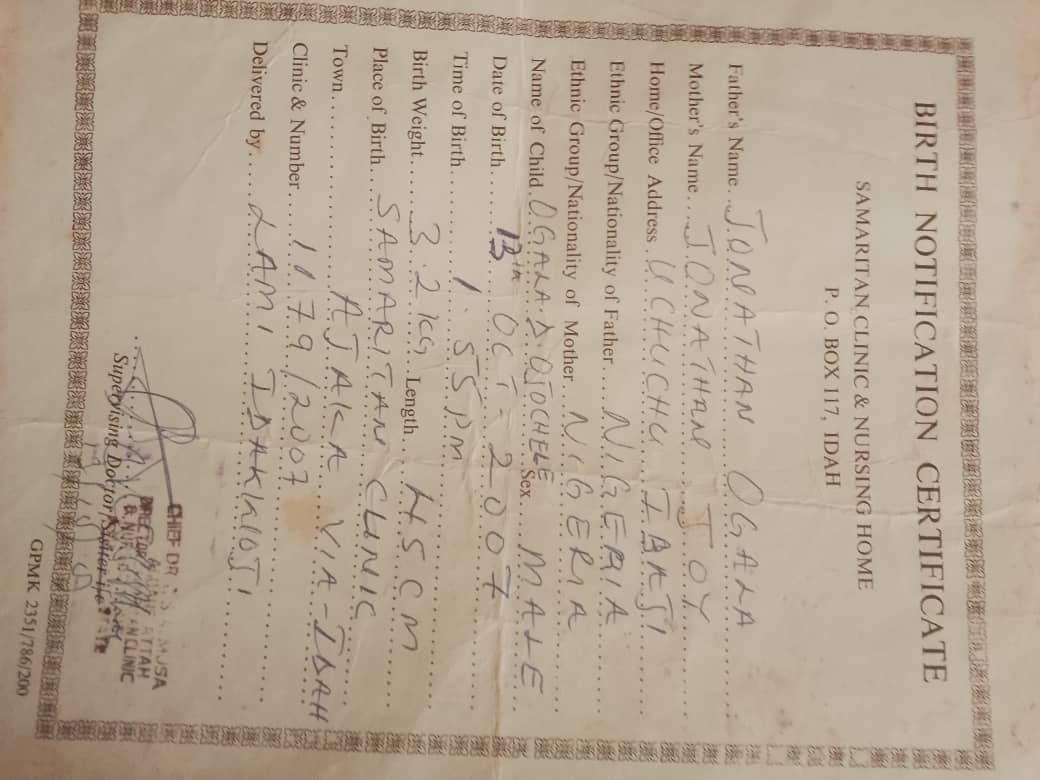 BIRTH NOTIFICATION CERTIFICATE
SAMARITAN CLINIC & NURSING HOME
P. O. BOX 117, IDAH
Father's Name... JONATHAN OGALA
Mother's Name... JONATHAN JOY
Home/Office Address UCHUCHU IBAJI
Ethnic Group/Nationality of Father.... NIGERIA
Ethnic Group/Nationality of Mother... NIGERIA
Name of Child. OGALA D OJOCHELE Sex... MALE
Date of Birth..... 13th OCT- 2007
Time of Birth........ 1:55pm
Birth Weight..... 3.2KG Length.. 45 CM
Place of Birth... SAMARITAN CLINIC
Town............ AJAKA VIA-IDAH
Clinic & Number.... 1179/2007
Delivered by.... LAMI IDAKWOJI
CHIEF DR MUSA
ATTAH
CLINIC
Supervising Doctor
GPMK 2351/786/200